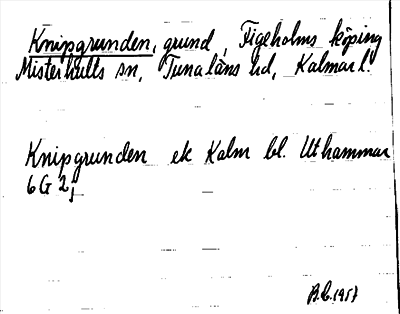 Knipgrunden, grund, Figeholms köping
Misterhults sn, Tunaläns hd, Kalmar l.
Knipgrunden ek Kalm bl. Uthammar
6G 2j
1957